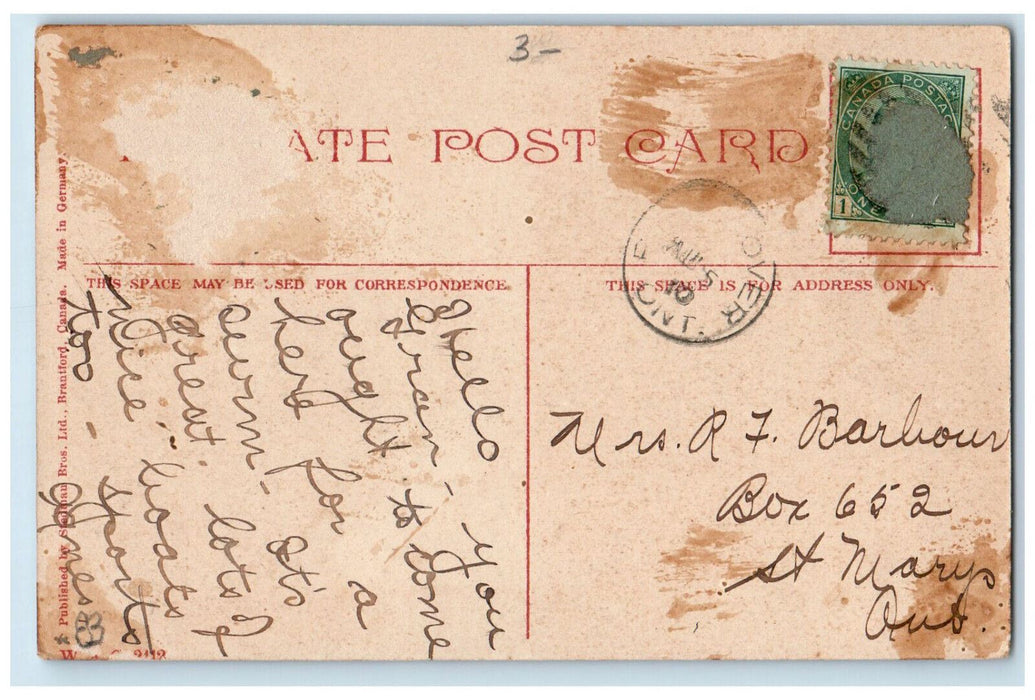 3-
ATE POST CARD
CANADA POSTAG
ONE
1
OVER ONT.
5 PM
10
THIS SPACE MAY BE USED FOR CORRESPONDENCE
THIS SPACE IS FOR ADDRESS ONLY.
Hello
Fran - You
ought to come
here for a
swim - it's
great. lots of
Nice - boats
too - sports
Agnes B
Mrs. R F. Barbour
Box 652
St Marys
Ont.
* Published by Stedman Bros. Ltd., Brantford, Canada. Made in Germany.
2112